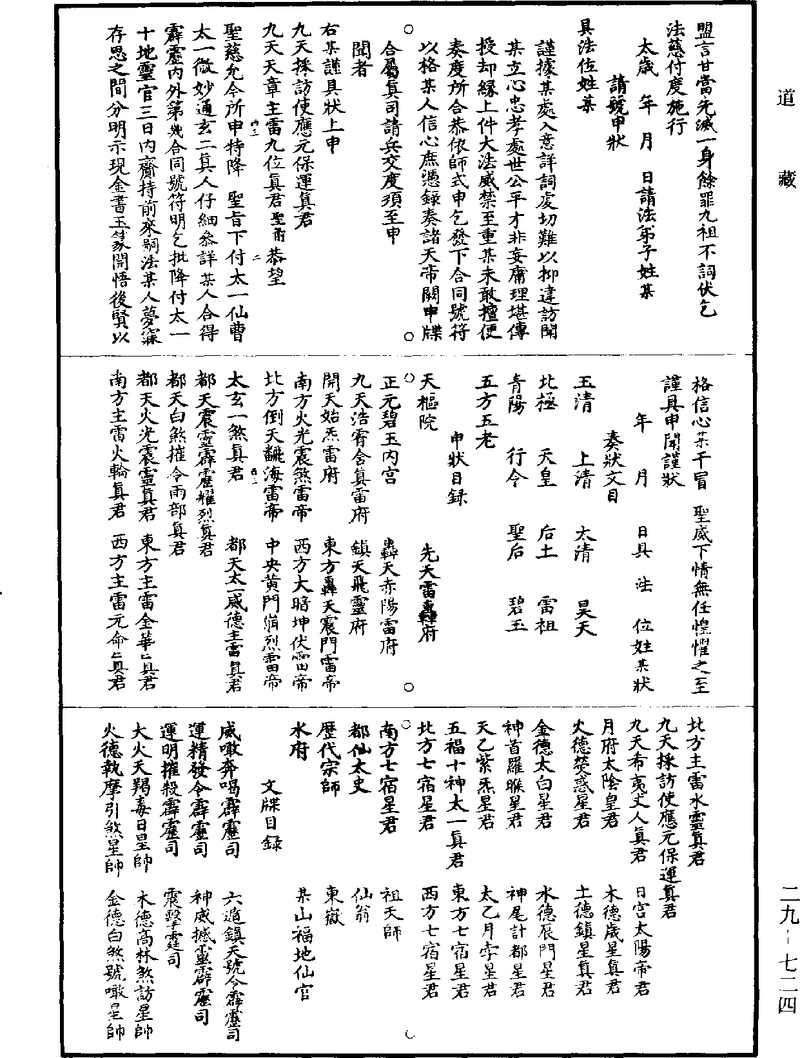 道藏
盟言甘當先滅一身餘罪九祖不詞伏乞
法慈付度施行
太歲　年　月　日請法弟子姓某
請號申狀
具法位姓某
謹據某處入意詳詞虔切難以抑違訪聞
某立心忠孝處世公平才非妄庸理堪傳
授却緣上件大法威禁至重某未敢擅便
奏度所合恭依師式申乞發下合同號符
以格某人信心庶憑錄奏諸天帝闕申牒
合屬眞司請兵交度須至申
聞者
右某謹具狀上申
九天採訪使應元保運眞君
九天天章主雷九位眞君聖前恭望
聖慈允令所申特降　聖旨下付太一仙曹
太一微妙通玄二眞人仔細參詳某人合得
霹靂內外第幾合同號符明乞批降付太一
十地靈官三日內齎持前來嗣法某人夢寐
存思之間分明示現金書玉篆開悟後賢以
格信心某干冒　聖威下情無任惶懼之至
謹具申聞謹狀
年　月　日具　法　位姓某狀
奏狀文目
玉清　上清　太清　昊天
北極　天皇　后土　雷祖
青陽　行令　聖后　碧玉
五方五老
申狀目錄
天樞院　先天雷轟府
正元碧玉內宮　轟天赤陽雷府
九天浩宥舍眞雷府　鎮天飛靈府
開天始炁雷府　東方轟天震門雷帝
南方火光震煞雷帝　西方大暗坤伏雷帝
北方倒天翻海雷帝　中央黃門崩烈雷帝
太玄一煞眞君　都天太一威德主雷眞君
都天震靈霹靂耀烈眞君
都天白煞摧令雨部眞君
都天火光震靈眞君　東方主雷金華上眞君
南方主雷火輪眞君　西方主雷元命上眞君
北方主雷水靈眞君
九天採訪使應元保運眞君
九天希夷丈人眞君　日宮太陽帝君
月府太陰皇君　木德歲星眞君
火德熒惑星君　土德鎮星眞君
金德太白星君　水德辰門星君
神首羅睺星君　神尾計都星君
天乙紫炁星君　太乙月孛星君
五福十神太一眞君　東方七宿星君
北方七宿星君　西方七宿星君
南方七宿星君　祖天師
都仙太史　仙翁
歷代宗師　東嶽
水府　某山福地仙官
文牒目錄
威噉奔喝霹靂司　六通鎮天號令霹靂司
運精發令霹靂司　神威撼靈霹靂司
運明摧殺霹靂司　震擊霆司
大火天羯毒日星帥　木德高林煞訪星帥
火德執摩引煞星帥　金德白煞號噉星帥
二九－七二四